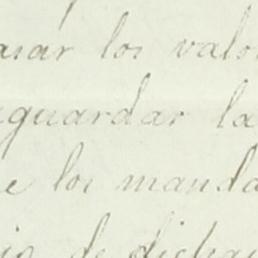 asar los valo
guardar la
e los manda
io de dicha